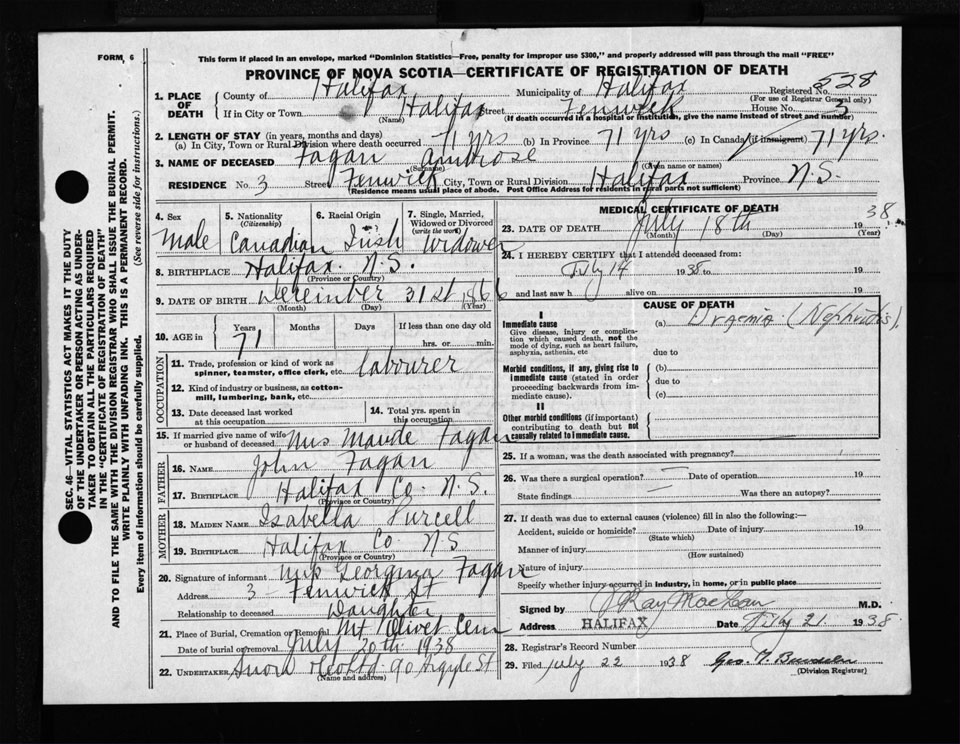 FORM 6
This form if placed in an envelope, marked "Dominion Statistics—Free, penalty for improper use $300," and properly addressed will pass through the mail "FREE"
PROVINCE OF NOVA SCOTIA—CERTIFICATE OF REGISTRATION OF DEATH
SEC. 46—VITAL STATISTICS ACT MAKES IT THE DUTY
OF THE UNDERTAKER OR PERSON ACTING AS UNDER-
TAKER TO OBTAIN ALL THE PARTICULARS REQUIRED
IN THE "CERTIFICATE OF REGISTRATION OF DEATH"
AND TO FILE THE SAME WITH THE DIVISION REGISTRAR WHO SHALL ISSUE THE BURIAL PERMIT.
WRITE PLAINLY WITH UNFADING INK. THIS IS A PERMANENT RECORD.
Every item of information should be carefully supplied. (See reverse side for instructions.)
1. PLACE OF DEATH
County of Halifax Municipality of Halifax Registered No. 528
(For use of Registrar General only)
If in City or Town Halifax Street Fenwick House No. 3
(Name) (If death occurred in a hospital or institution, give the name instead of street and number)
2. LENGTH OF STAY (in years, months and days)
(a) In City, Town or Rural Division where death occurred 71 yrs (b) In Province 71 yrs (c) In Canada (if immigrant) 71 yrs.
3. NAME OF DECEASED Fagan Ambrose
(Surname) (Given name or names)
RESIDENCE No. 3 Street Fenwick City, Town or Rural Division Halifax Province N.S.
(Residence means usual place of abode. Post Office Address for residents in rural parts not sufficient)
4. Sex Male
5. Nationality (Citizenship) Canadian
6. Racial Origin Irish
7. Single, Married, Widowed or Divorced (write the word) Widower
8. BIRTHPLACE Halifax N.S.
(Province or Country)
9. DATE OF BIRTH December 31st 1866
(Month) (Day) (Year)
10. AGE in Years 71 Months Days If less than one day old
hrs. or min.
OCCUPATION
11. Trade, profession or kind of work as spinner, teamster, office clerk, etc. labourer
12. Kind of industry or business, as cotton-mill, lumbering, bank, etc.
13. Date deceased last worked at this occupation
14. Total yrs. spent in this occupation
15. If married give name of wife or husband of deceased Mrs Maude Fagan
FATHER
16. NAME John Fagan
17. BIRTHPLACE Halifax Co. N.S.
(Province or Country)
MOTHER
18. MAIDEN NAME Isabella Purcell
19. BIRTHPLACE Halifax Co N S
(Province or Country)
20. Signature of informant Miss Georgina Fagan
Address 3 Fenwick St
Relationship to deceased Daughter
21. Place of Burial, Cremation or Removal Mt Olivet Cem
Date of burial or removal July 20th 1938
22. UNDERTAKER Snow & Co Ltd 90 Argyle St
(Name and address)
MEDICAL CERTIFICATE OF DEATH
23. DATE OF DEATH July 18th 1938
(Month) (Day) (Year)
24. I HEREBY CERTIFY that I attended deceased from:
July 14 1938 to 19
and last saw h alive on 19
CAUSE OF DEATH
I
Immediate cause
Give disease, injury or complication which caused death, not the mode of dying, such as heart failure, asphyxia, asthenia, etc
(a) Uraemia (Nephritis)
due to
Morbid conditions, if any, giving rise to immediate cause (stated in order proceeding backwards from immediate cause).
(b)
due to
(c)
II
Other morbid conditions (if important) contributing to death but not causally related to immediate cause.
25. If a woman, was the death associated with pregnancy?
26. Was there a surgical operation? Date of operation 19
State findings Was there an autopsy?
27. If death was due to external causes (violence) fill in also the following:—
Accident, suicide or homicide? Date of injury 19
(State which)
Manner of injury
(How sustained)
Nature of injury
Specify whether injury occurred in industry, in home, or in public place
Signed by J Ray MacLean M.D.
Address HALIFAX Date July 21 1938.
28. Registrar's Record Number
29. Filed July 22 1938 Geo.
(Division Registrar)